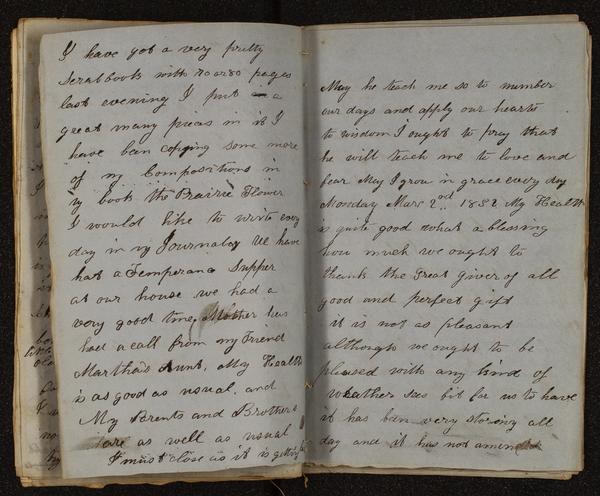 I have got a very pretty
scrabbook with 70 or 80 pages
last evening I put in a
great many pieces in it I
have been copying some more
of my Compositions in
my book the Prairie Flower
I would like to write every
day in my Journal We have
had a Temperance Supper
at our house we had a
very good time, Mother has
had a call from my Friend
Marthas Aunt, My Health
is as good as usual, and
My Parents and Brothers
are as well as usual
I must close as it is getting
May he teach me so to number
our days and apply our hearts
to wisdom I ought to pray that
he will teach me to love and
fear May I grow in grace every day
Monday Mars 2nd 1852 My Health
is quite good what a blessing
how much we ought to
thank the Great Giver of all
good and perfect gift
it is not as pleasant
although we ought to be
pleased with any kind of
Weather sees fit for us to have
it has ben very storing all
day and it has not amended